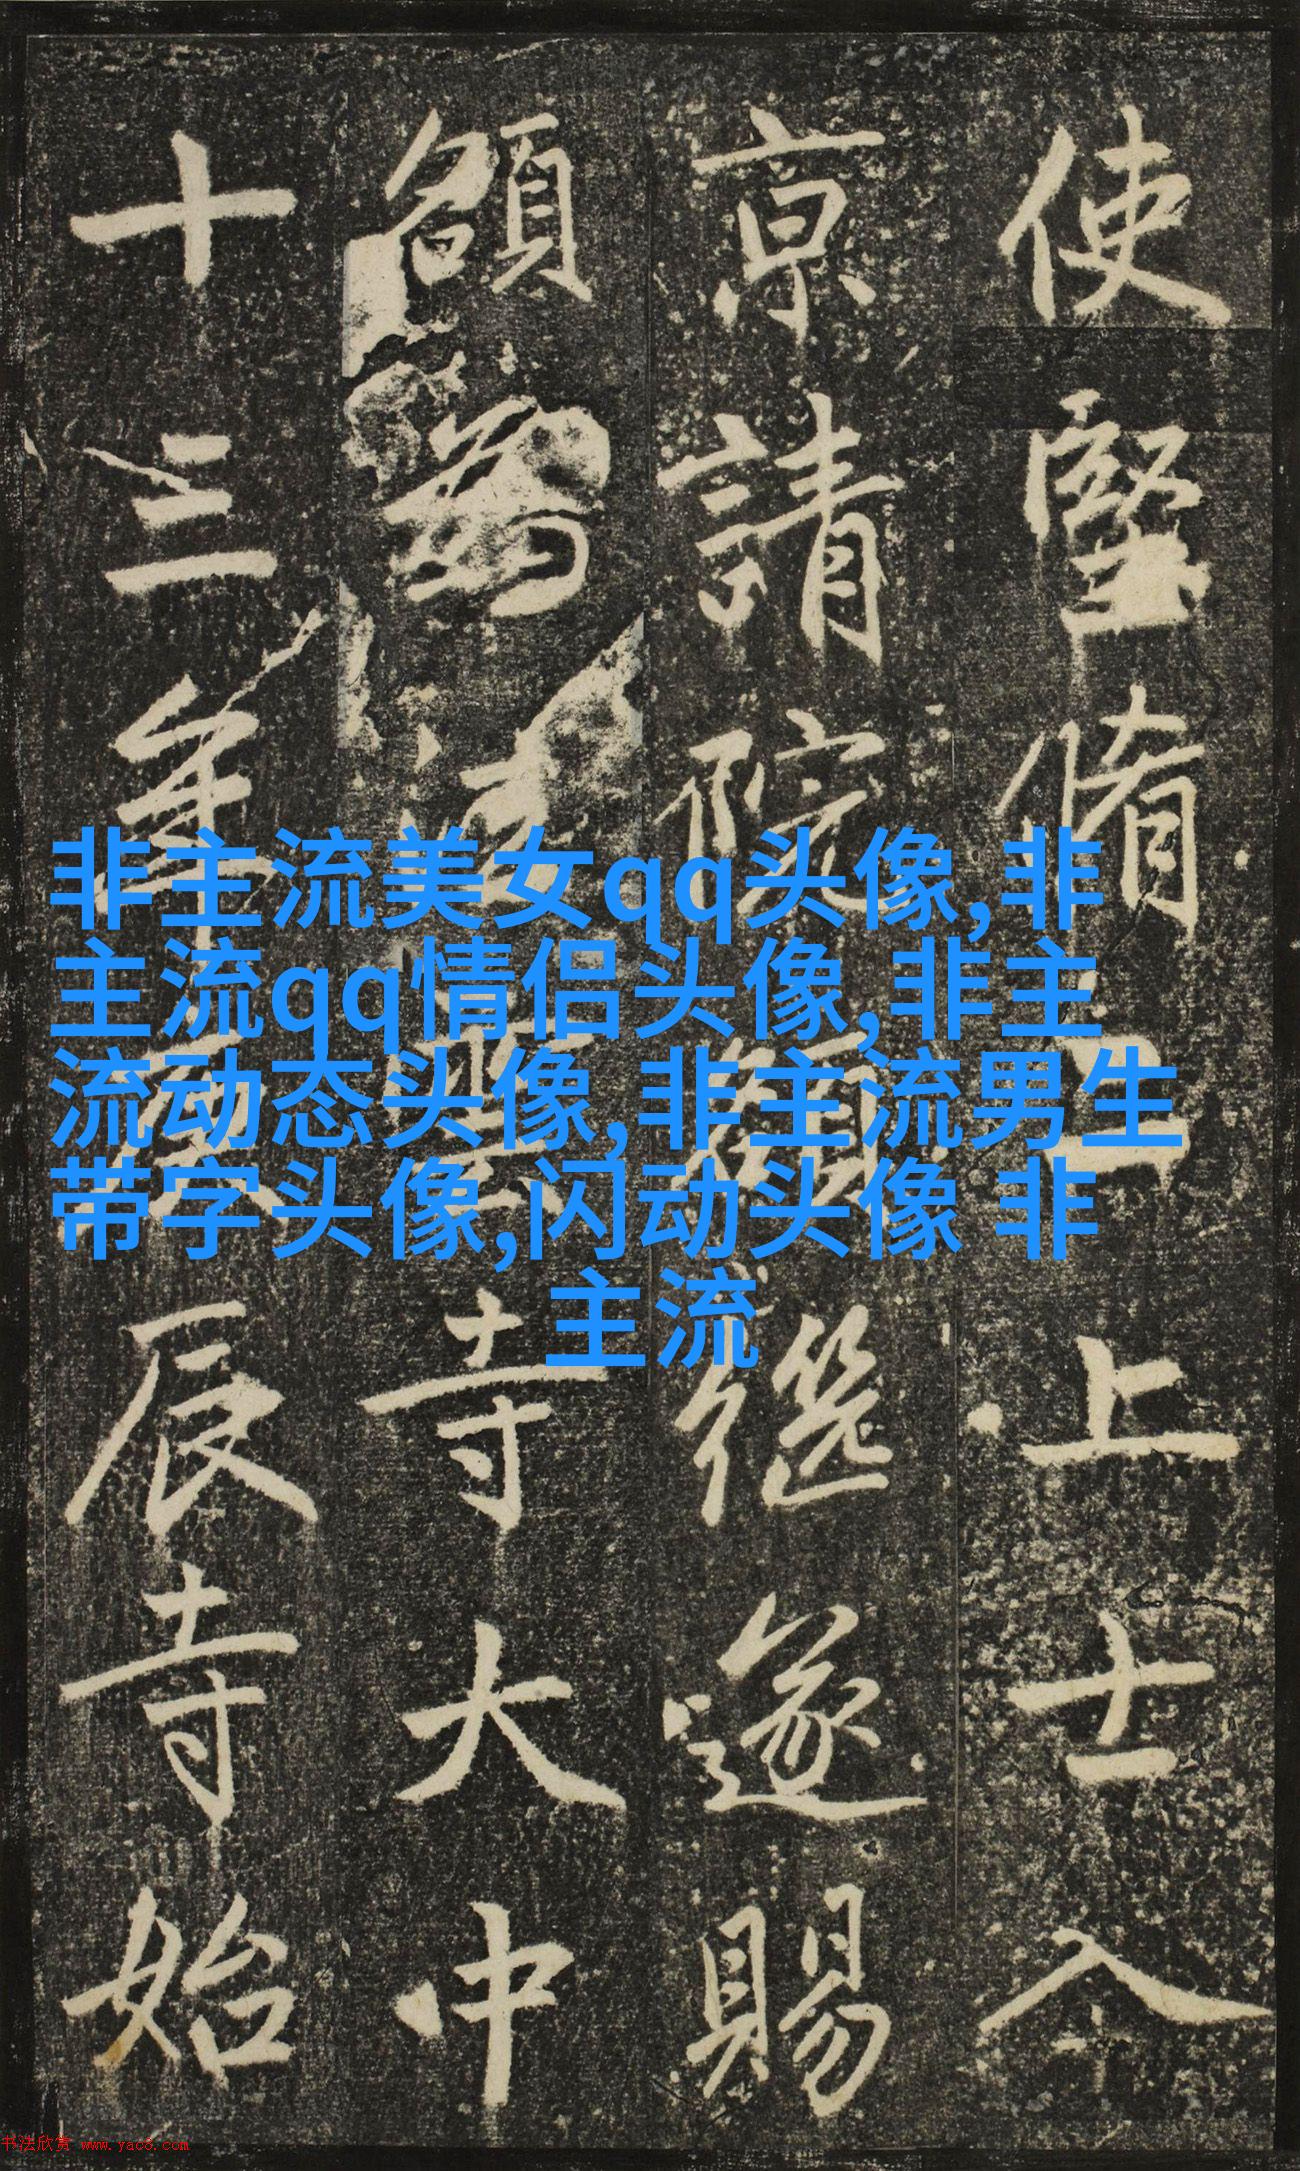 使堅脩二上士入
京請院額繼遂賜
額為法雲寺大中
十三年辰寺始
非主流美女qq头像,非
主流qq情侣头像,非主
流动态头像,非主流男生
带字头像,闪动头像 非
主流
书法欣赏 www.yac8.com